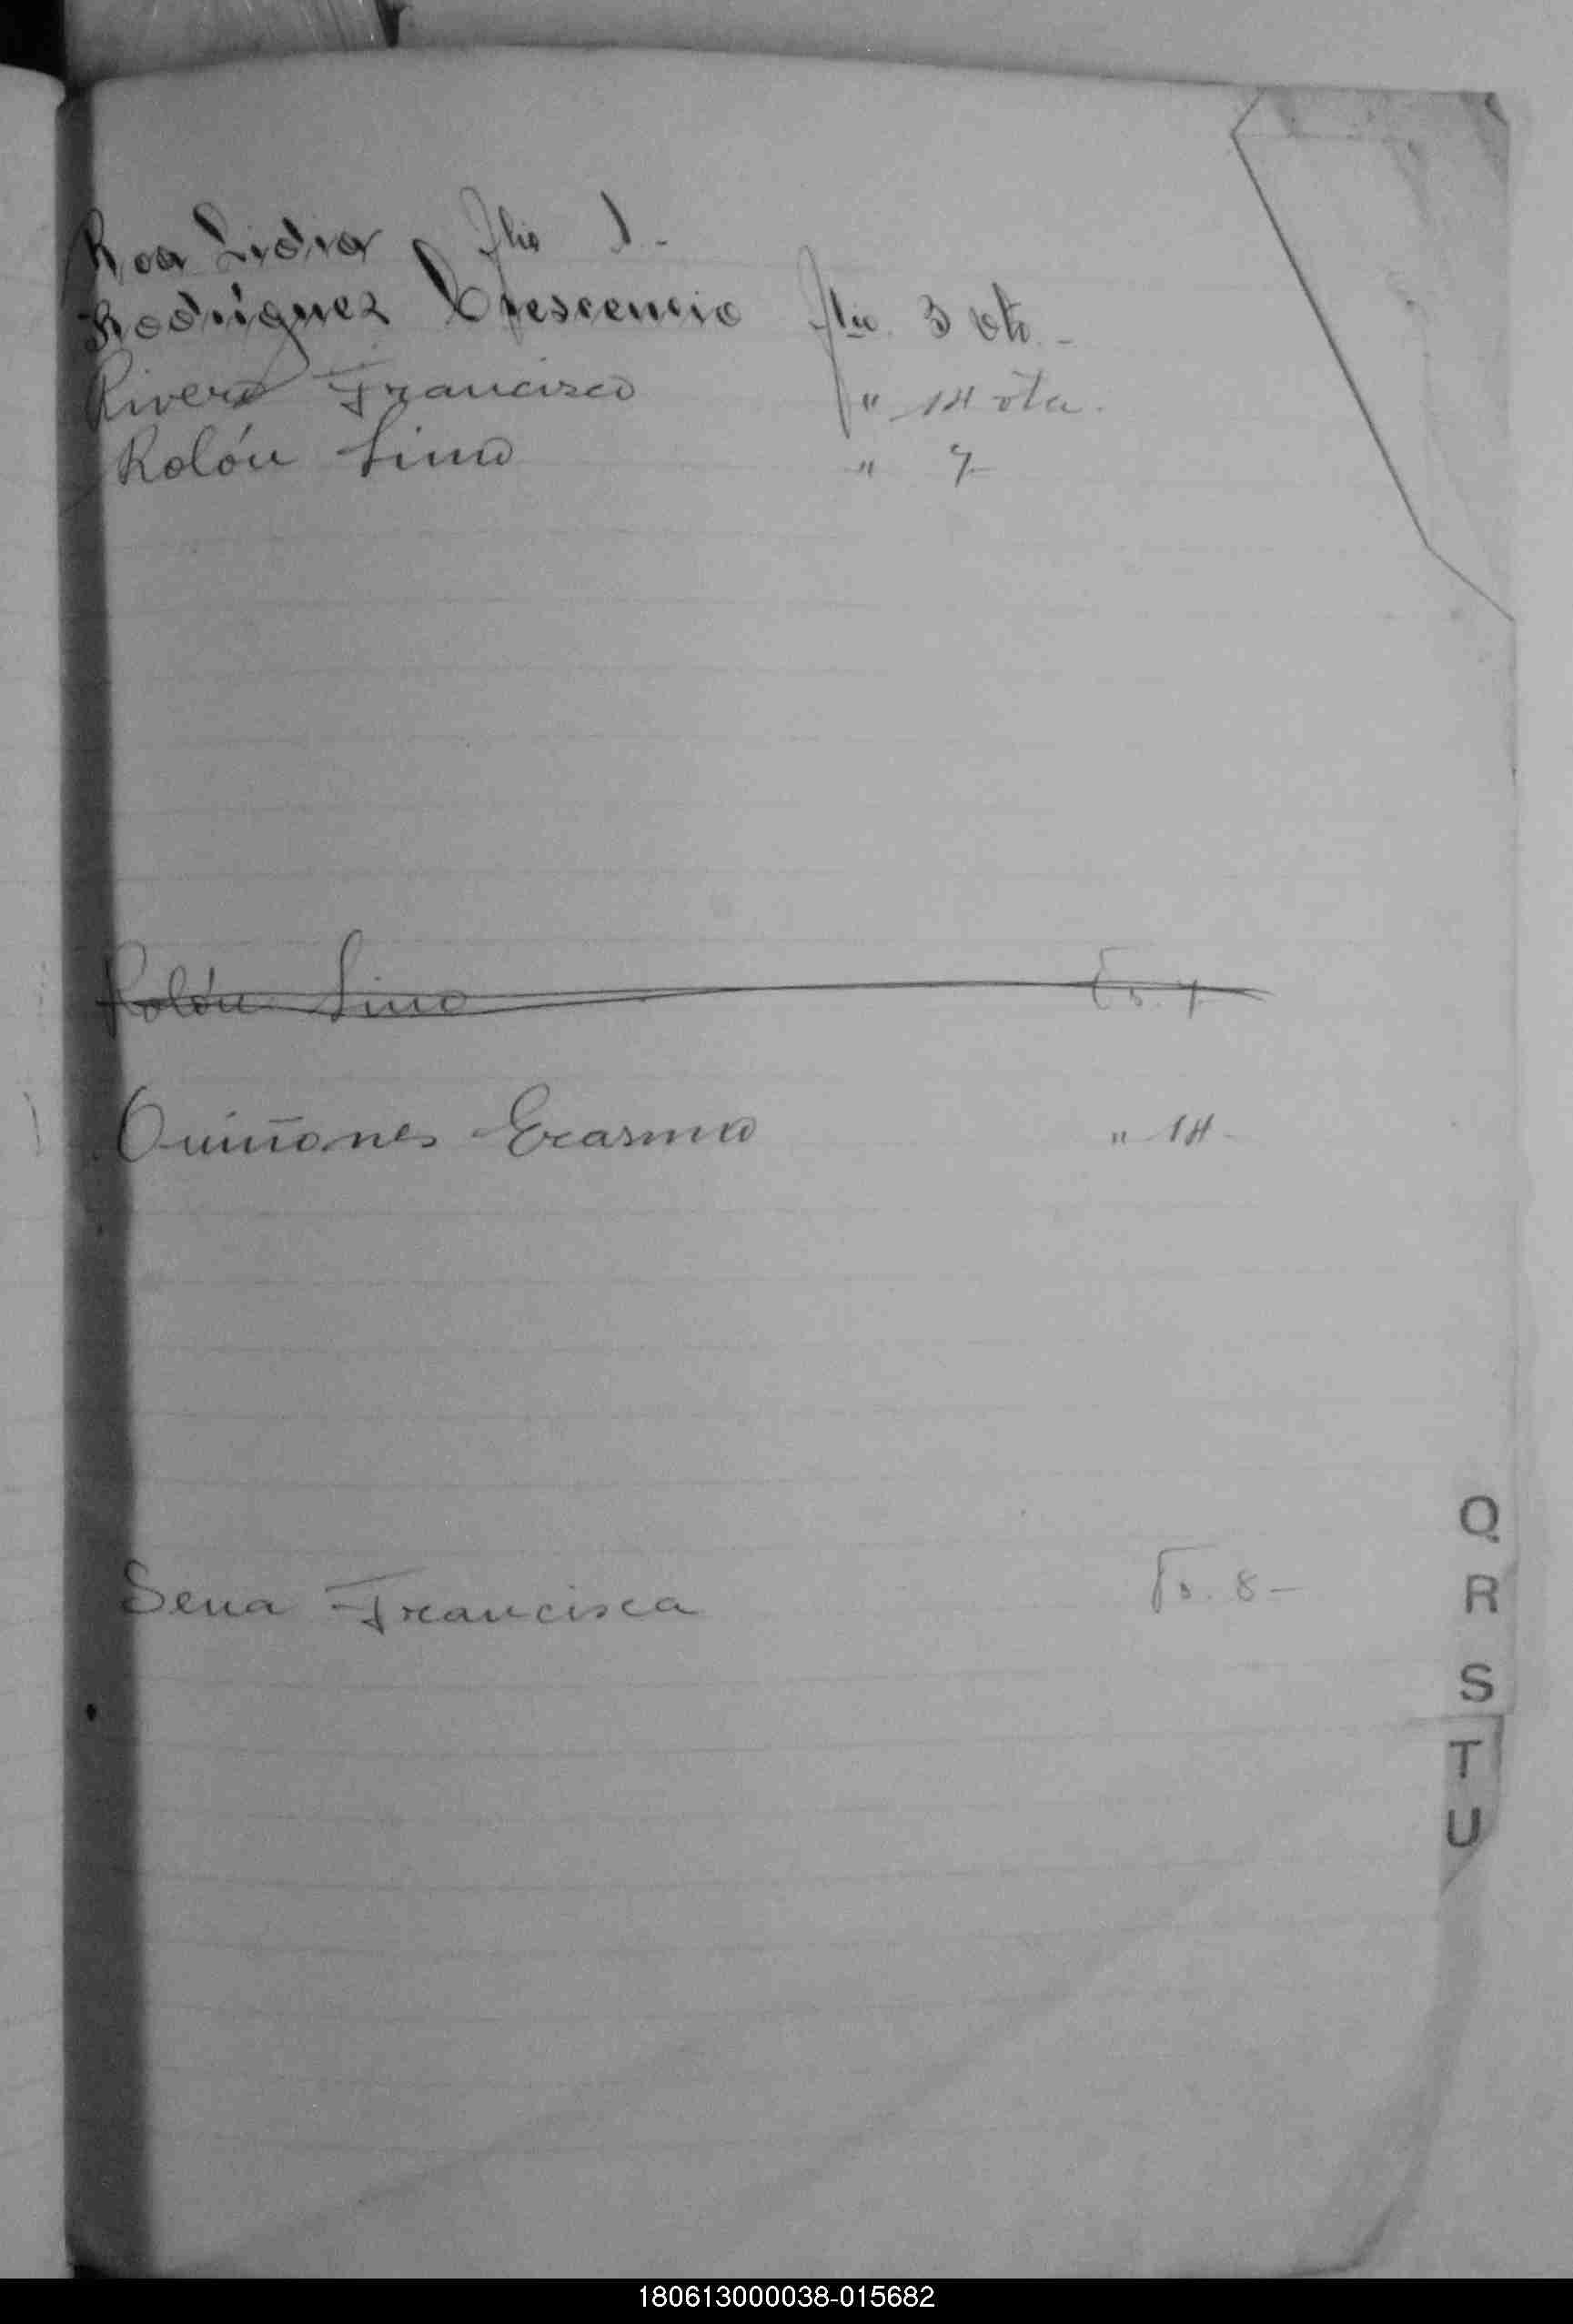 Roa Lidia flio 1.-
Rodríguez Crescencio flio. 3 vto.-
Rivero Francisco " 14 vta.
Rolón Lino " 7-
Rolón Lino Fo. 7
Quiñones Erasmo " 14-
Sena Francisca Fo. 8-
Q
R
S
T
U
180613000038-015682